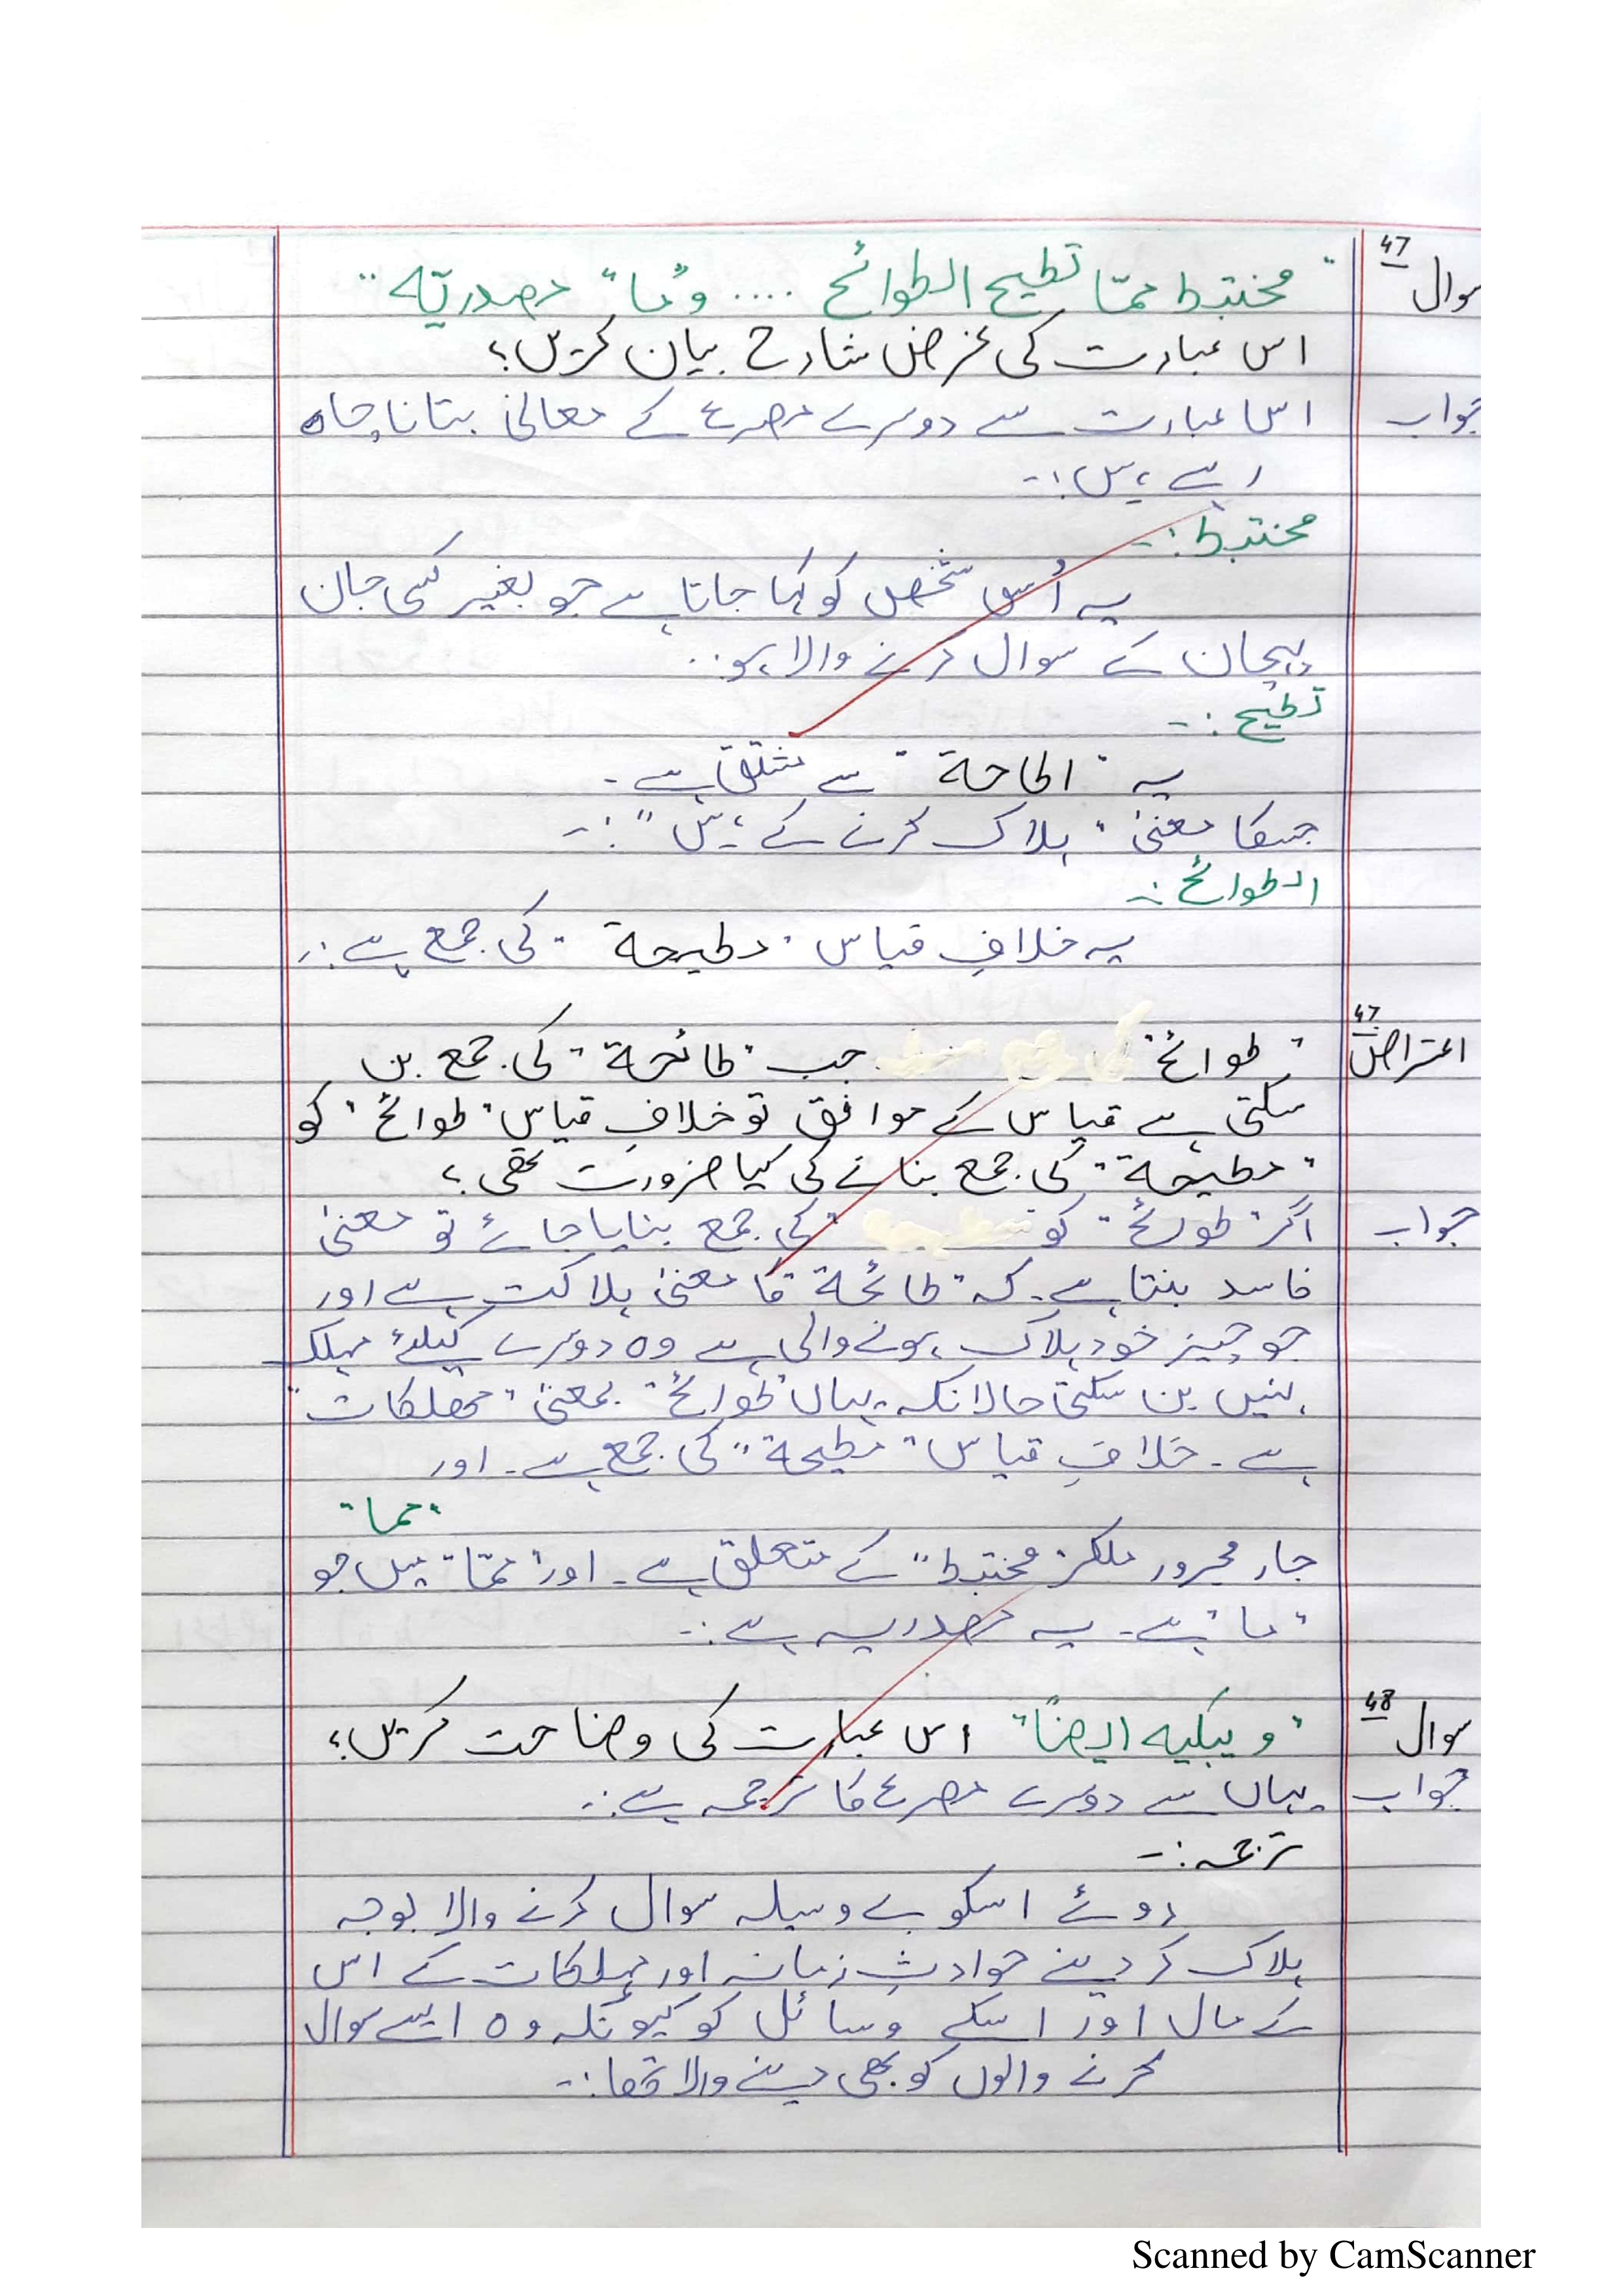 سوال 47 "مختبط ممّا تطیح الطوائح .... و"ما" مصدریّه"
اس عبارت کی غرض شارح بیان کریں؟
جواب اس عبارت سے دوسرے مصرعے کے معانی بتانا چاہ
رہے ہیں:-
مختبط:-
یہ اُس شخص کو کہا جاتا ہے جو بغیر کسی جان
پہچان کے سوال کرنے والا ہو..
تطیح:-
یہ "اطاحة" سے مشتق ہے-
جسکا معنیٰ "ہلاک کرنے کے ہیں":-
الطوائح:-
یہ خلافِ قیاس "مطیحة" کی جمع ہے:-
اعتراض 47 "طوائح" جب "طائحة" کی جمع بن
سکتی ہے قیاس کے موافق تو خلافِ قیاس "طوائح" کو
"مطیحة" کی جمع بنانے کی کیا ضرورت تھی؟
جواب اگر "طوائح" کو کی جمع بنایا جائے تو معنیٰ
فاسد بنتا ہے۔ کہ "طائحة" کا معنیٰ ہلاکت ہے اور
جو چیز خود ہلاک ہونے والی ہے وہ دوسرے کیلئے مہلک
نہیں بن سکتی حالانکہ یہاں "طوائح" بمعنیٰ "مھلکات"
ہے۔ خلافِ قیاس "مطیحة" کی جمع ہے۔ اور
"مما"
جار مجرور ملکر "مختبط" کے متعلق ہے۔ اور "ممّا" میں جو
"ما" ہے۔ یہ مصدریہ ہے:-
سوال 48 "ویبکیه ایضاً" اس عبارت کی وضاحت کریں؟
جواب یہاں سے دوسرے مصرعے کا ترجمہ ہے:-
ترجمہ:-
روئے اسکو بے وسیلہ سوال کرنے والا بوجہ
ہلاک کر دینے حوادثِ زمانہ اور مہلکات کے اس
کے مال اور اسکے وسائل کو کیونکہ وہ ایسے سوال
کرنے والوں کو بھی دینے والا تھا:-
Scanned by CamScanner